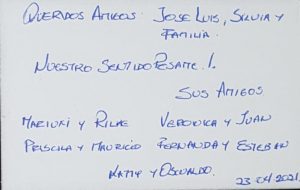 QUERIDOS AMIGOS: JOSE LUIS, SILVIA Y
FAMILIA.
NUESTRO SENTIDO PESAME !.
SUS AMIGOS
MARIUXI Y VERONICA Y JUAN
PRISCILA Y MAURICIO FERNANDA Y ESTEBAN
KATTY Y OSWALDO.
23 04 2021